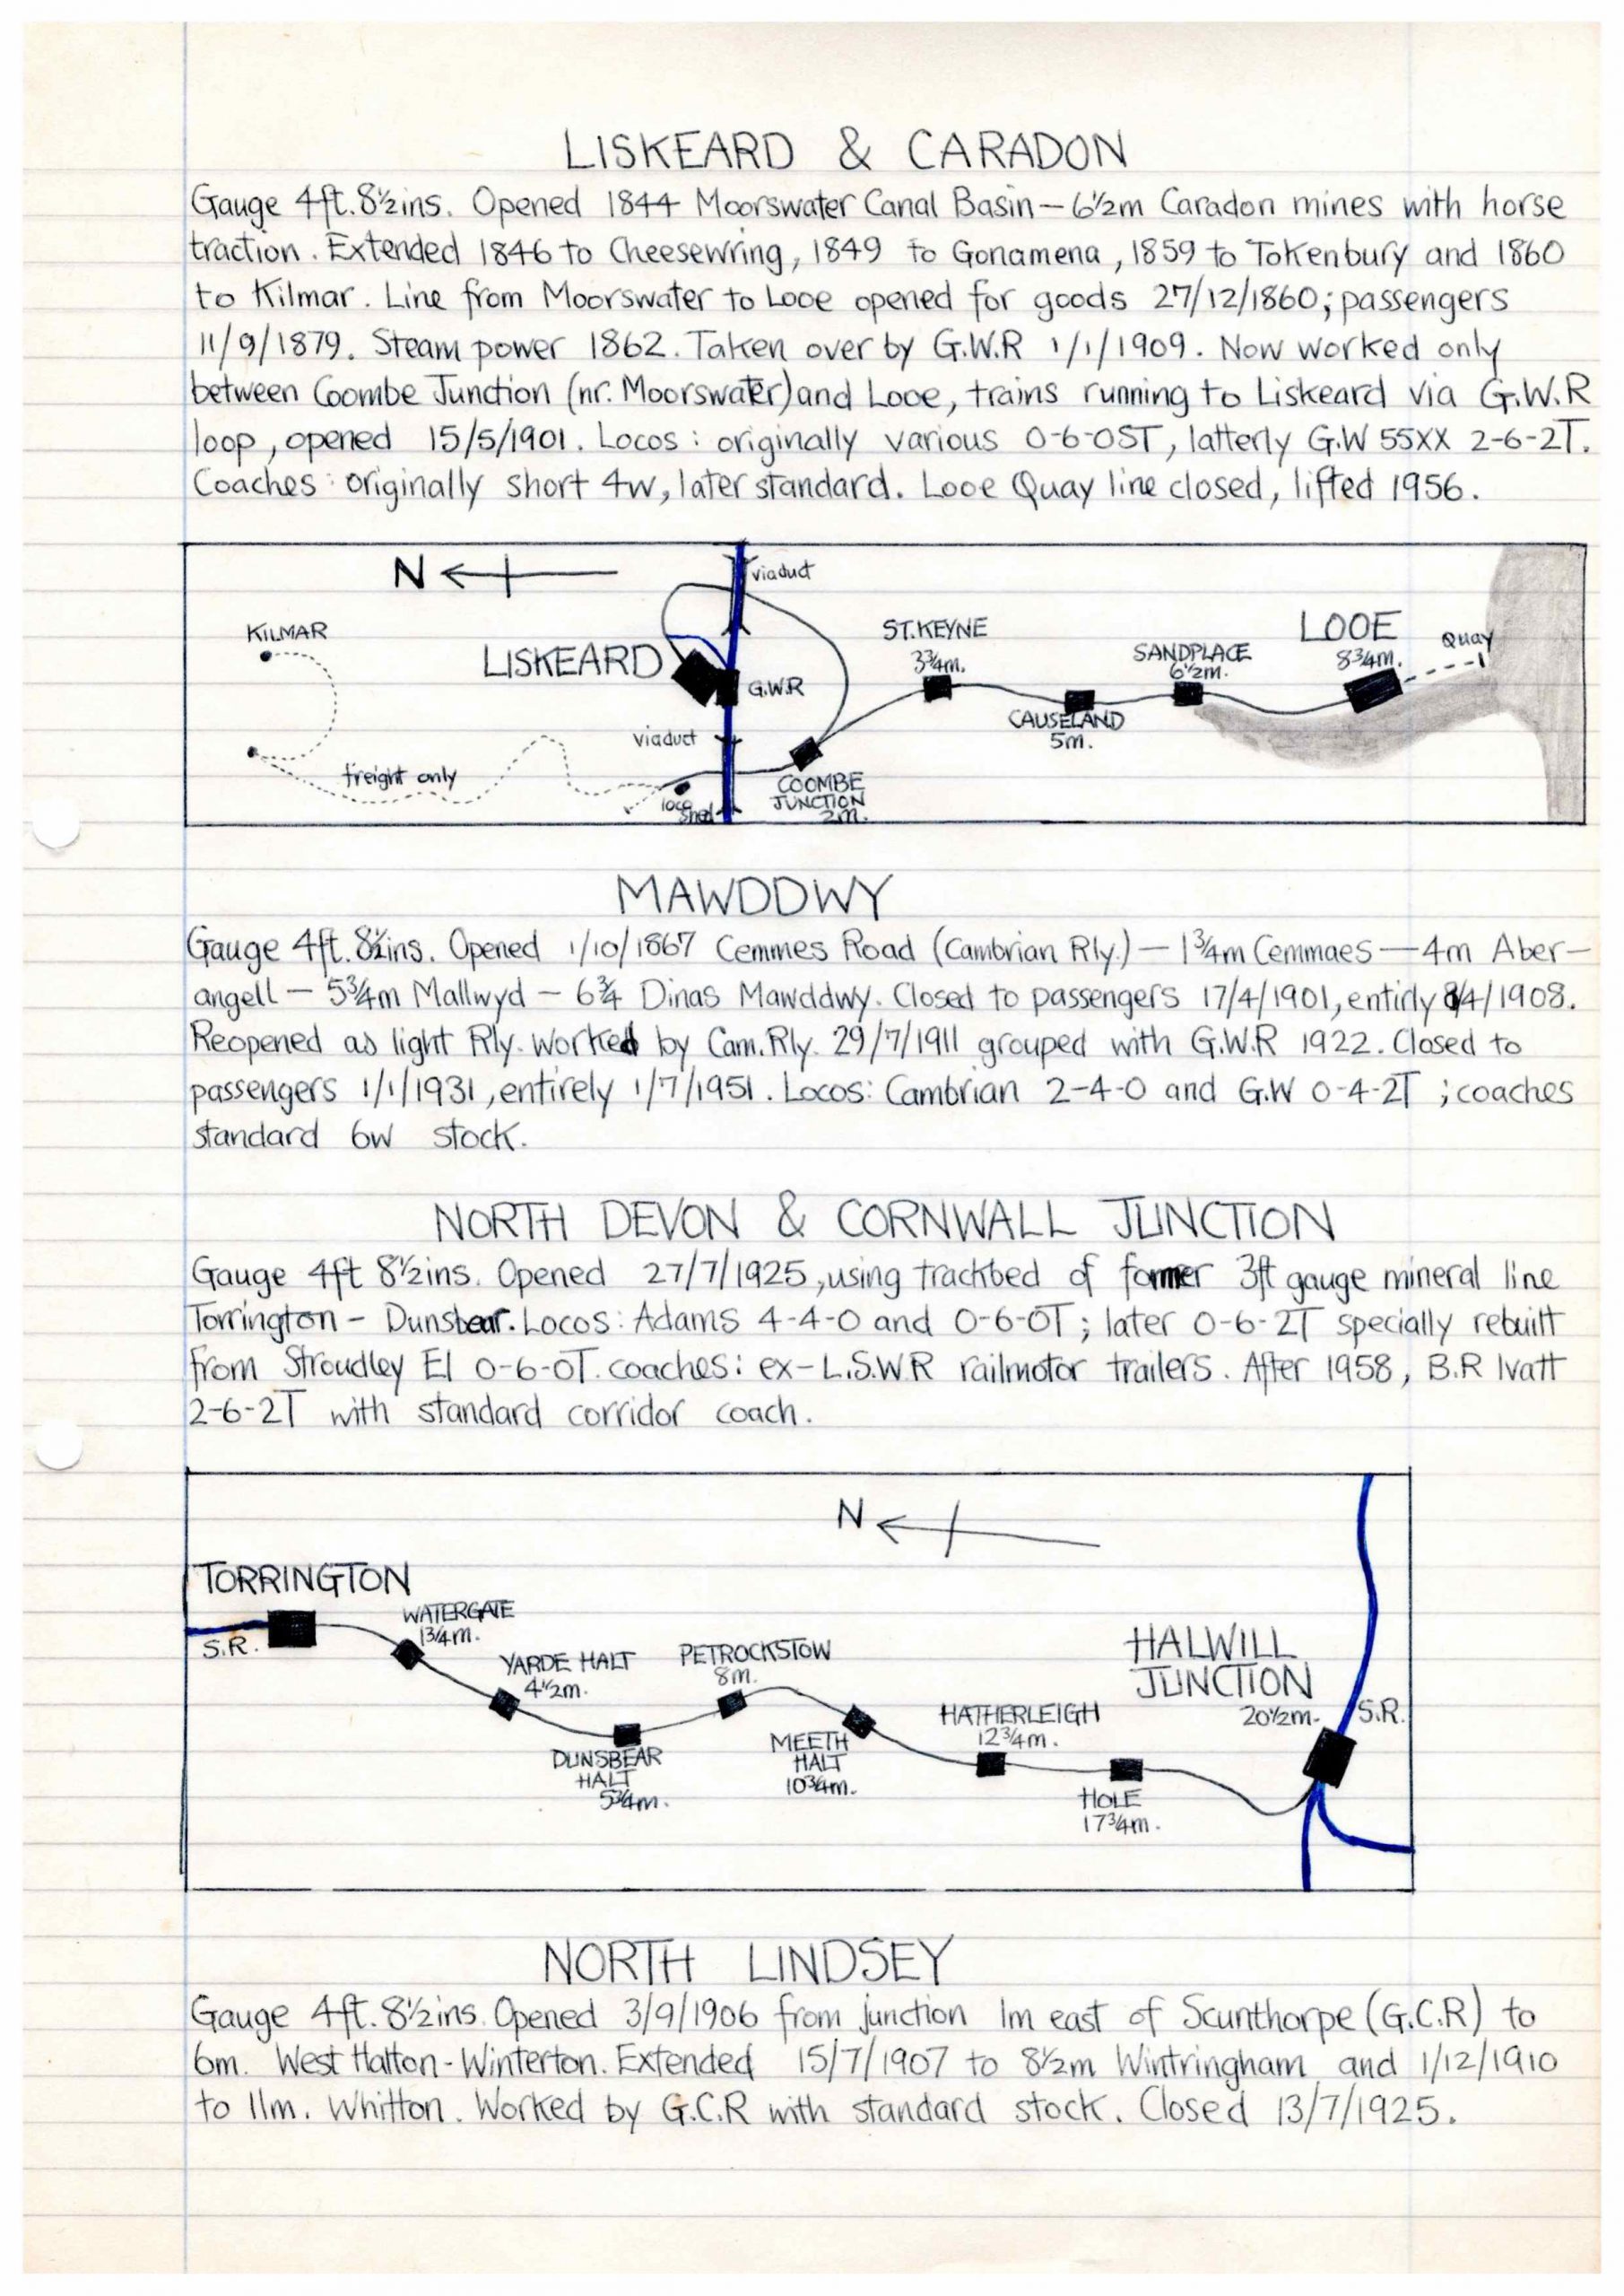 LISKEARD & CARADON
Gauge 4ft. 8½ins. Opened 1844 Moorswater Canal Basin — 6½m Caradon mines with horse
traction. Extended 1846 to Cheesewring, 1849 to Gonamena, 1859 to Tokenbury and 1860
to Kilmar. Line from Moorswater to Looe opened for goods 27/12/1860; passengers
11/9/1879. Steam power 1862. Taken over by G.W.R 1/1/1909. Now worked only
between Coombe Junction (nr. Moorswater) and Looe, trains running to Liskeard via G.W.R
loop, opened 15/5/1901. Locos: originally various 0-6-0ST, latterly G.W 55XX 2-6-2T.
Coaches: originally short 4w, later standard. Looe Quay line closed, lifted 1956.
N
viaduct
KILMAR
LISKEARD
G.W.R
viaduct
freight only
loco
shed
COOMBE
JUNCTION
2m.
ST.KEYNE
3¾m.
CAUSELAND
5m.
SANDPLACE
6½m.
LOOE
8¾m.
Quay
MAWDDWY
Gauge 4ft. 8½ins. Opened 1/10/1867 Cemmes Road (Cambrian Rly.) — 1¾m Cemmaes — 4m Aber—
angell — 5¾m Mallwyd — 6¾ Dinas Mawddwy. Closed to passengers 17/4/1901, entirly 8/4/1908.
Reopened as light Rly. worked by Cam. Rly. 29/7/1911 grouped with G.W.R 1922. Closed to
passengers 1/1/1931, entirely 1/7/1951. Locos: Cambrian 2-4-0 and G.W 0-4-2T; coaches
standard 6w stock.
NORTH DEVON & CORNWALL JUNCTION
Gauge 4ft 8½ins. Opened 27/7/1925, using trackbed of former 3ft gauge mineral line
Torrington — Dunsbear. Locos: Adams 4-4-0 and 0-6-0T; later 0-6-2T specially rebuilt
from Stroudley E1 0-6-0T. coaches: ex-L.S.W.R railmotor trailers. After 1958, B.R Ivatt
2-6-2T with standard corridor coach.
N
TORRINGTON
S.R.
WATERGATE
1¾m.
YARDE HALT
4½m.
DUNSBEAR
HALT
5¾m.
PETROCKSTOW
8m.
MEETH
HALT
10¾m.
HATHERLEIGH
12¾m.
HOLE
17¾m.
HALWILL
JUNCTION
20½m.
S.R.
NORTH LINDSEY
Gauge 4ft. 8½ins. Opened 3/9/1906 from junction 1m east of Scunthorpe (G.C.R) to
6m. West Halton-Winterton. Extended 15/7/1907 to 8½m Wintringham and 1/12/1910
to 11m. Whitton. Worked by G.C.R with standard stock. Closed 13/7/1925.